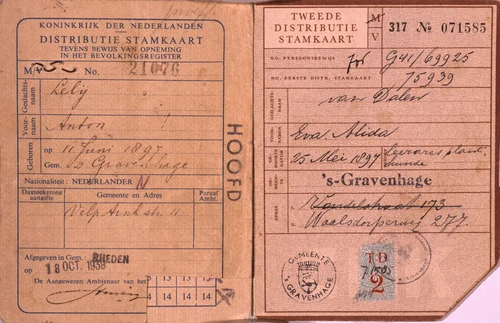 KONINKRIJK DER NEDERLANDEN
DISTRIBUTIE STAMKAART
TEVENS BEWIJS VAN OPNEMING
IN HET BEVOLKINGSREGISTER
M/V No. 21076
Geslachts-
naam
Lely
Voor-
naam
Anton
Geboren
op 11 Juni 1897
Gem. 's Gravenhage
Nationaliteit: NEDERLANDER N
Dagteekening
aangifte
Gemeente en Adres
Paraaf
Ambt.
Velp
Afgegeven in Gem.: RHEDEN
op 18 OCT. 1939
De Aanwezen Ambtenaar van het
14 14 14 14
HOOFD
TWEEDE
DISTRIBUTIE
STAMKAART
M
V
317 No 071585
NO. PERSOONSBEWIJS
G41/69925
NO. EERSTE DISTR. STAMKAART
75939
GESLACHTS-
NAAM
van Dalen
VOOR-
NAMEN
Eva Alida
25 Mei 1897
Leerares plant
kunde
's-Gravenhage
ADRES
173
Waalsdorperweg 277.
GEMEENTE
'S GRAVENHAGE
TD
2